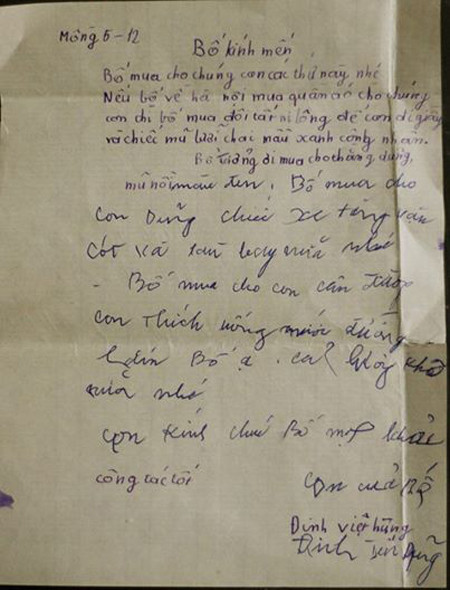 Mồng 5-12
Bố kính mến
Bố mua cho chúng con các thứ này nhé
Nếu bố về hà nội mua quần áo cho chúng
con thì bố mua đôi tất ni lông để con đi giầy
và chiếc mũ lưỡi chai mầu xanh công nhân.
Bố tưởng đi mua cho thằng dũng,
mũ nồi màu đen. Bố mua cho
con Dũng chiếc xe tăng vặn
cót và tàu bay nữa nhé
- Bố mua cho con cân
con thích uống nước đường
Bố ạ. cả
nữa nhé
con kính chúc Bố mạnh khoẻ
công tác tốt
con của Bố
Đinh việt hùng
Đinh Dũng